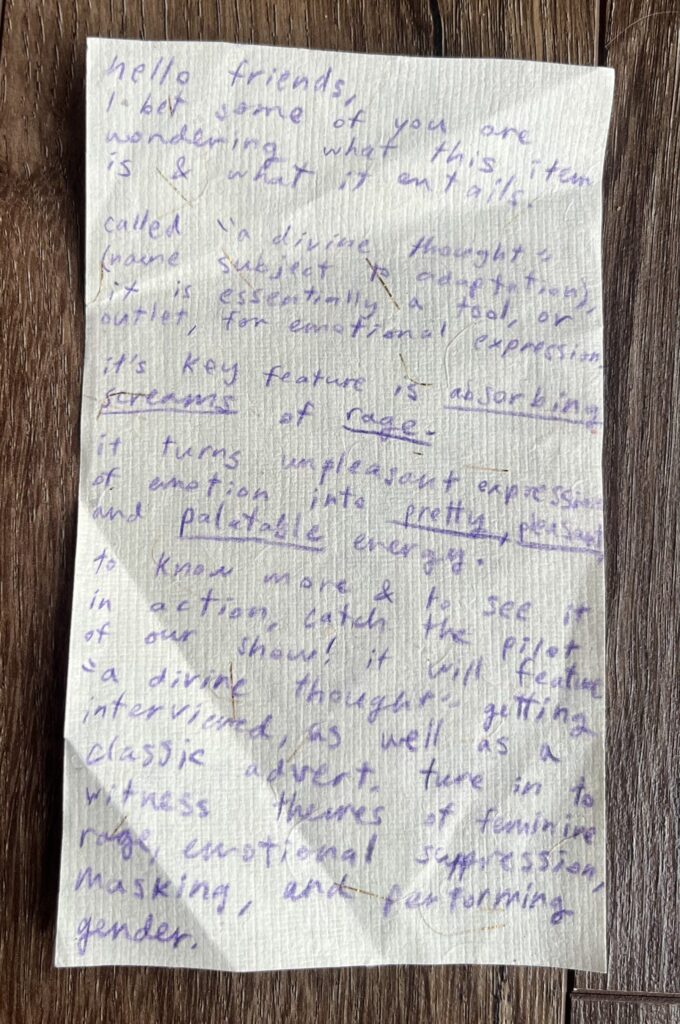 hello friends,
I bet some of you are
wondering what this item
is & what it entails.
called "a divine thought"
(name subject to adaptation),
it is essentially a tool, or
outlet, for emotional expression.
it's key feature is absorbing
screams of rage.
it turns unpleasant expression
of emotion into pretty, pleasant,
and palatable energy.
to know more & to see it
in action, catch the pilot
of our show! it will feature
"a divine thought" getting
interviewed, as well as a
classic advert. tune in to
witness themes of feminine
rage, emotional suppression,
masking, and performing
gender.